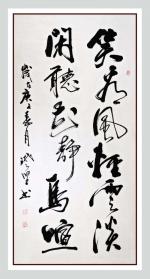 笑看風輕雲淡
閑聽花靜鳥喧
歲在庚子春月